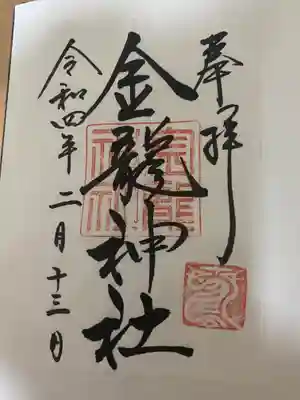 奉拝
金龍神社
令和四年二月十三日